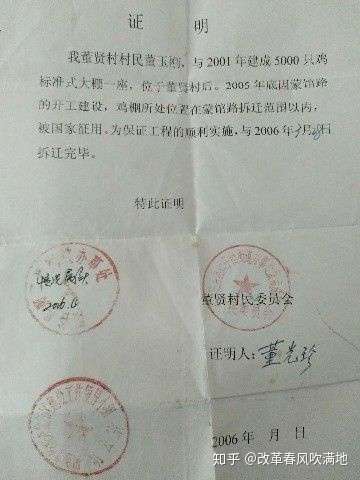 证 明
我董贤村村民董玉刚，与2001年建成5000只鸡
标准式大棚一座，位于董贤村后。2005年底因蒙馆路
的开工建设，鸡棚所处位置在蒙馆路拆迁范围以内，
被国家征用。为保证工程的顺利实施，与2006年3月8日
拆迁完毕。
特此证明
情况属实
2006.4
董贤村民委员会
证明人：董光珍
2006年 月 日
知乎 @改革春风吹满地